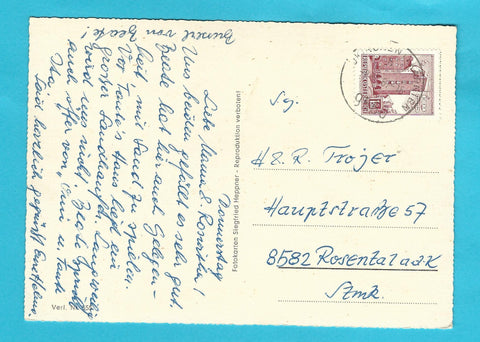 Donnerstag
Liebe Mama & Roswitha!
Uns beiden gefällt es sehr gut.
Beate hat hier auch Gelegen-
heit mit Sand zu spielen.
Vor Tante's Haus liegt ein
großer Sandhaufen. Langweilig
wird uns nicht! Viele Grüße
auch von Omi u. Tante
Seid herzlich gegrüßt
Busserl von Beate!
Fotokarten Siegfried Heppner - Reproduktion verboten!
Verl. Nr.
Sg.
H. & R. Trojer
Hauptstraße 57
8582 Rosental a.d.K
Stmk.